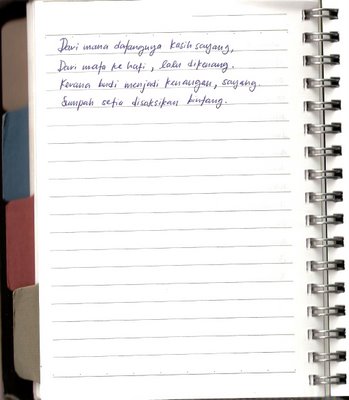 Dari mana datangnya kasih sayang,
Dari mata ke hati, lalu dikenang.
Kerana budi menjadi kenangan, sayang.
Sumpah setia disaksikan bintang.